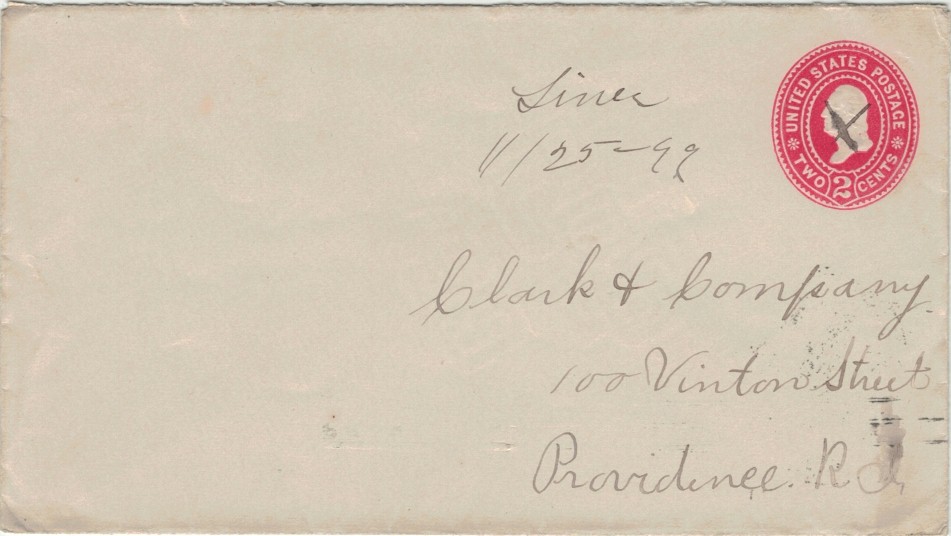 UNITED STATES POSTAGE
TWO 2 CENTS
11/25-99
Clark & Company.
100 Vinton Street
Providence. R. I.